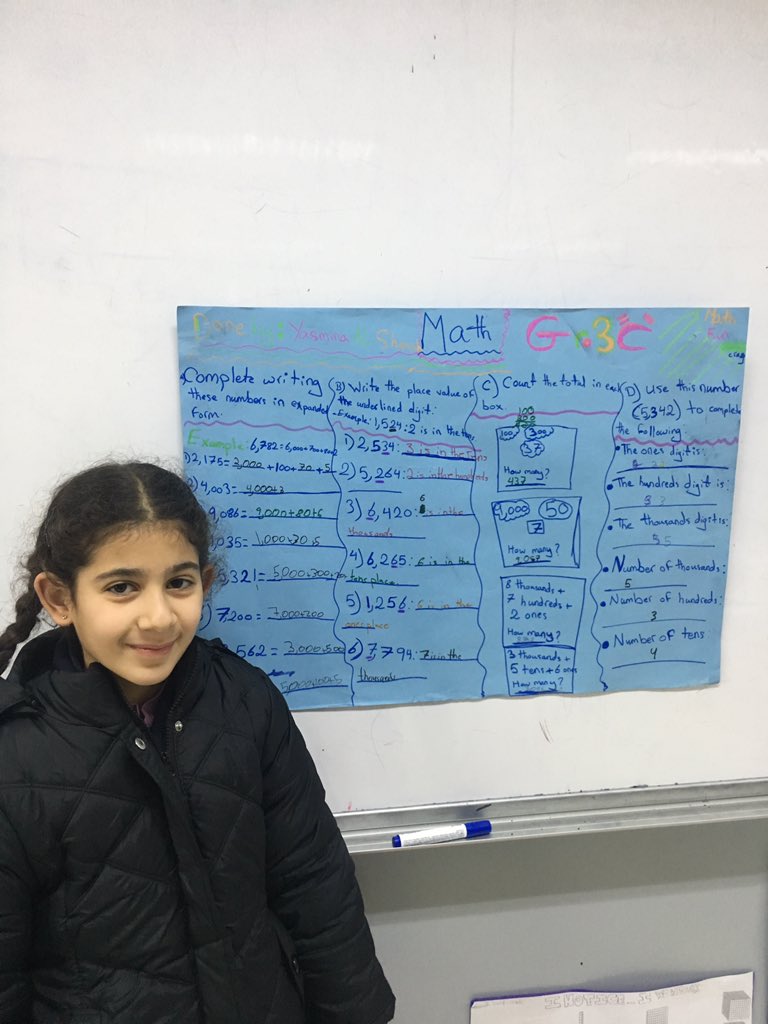 Done by: Yasmina
Math
Gr.3"C"
Math
Fun
Complete writing
these numbers in expanded
form.
Example: 6,782=6,000+700+80+2
2,175=2,000+100+70+5
4,003=4,000+3
9,086=9,000+80+6
035=1,000+30+5
321=5,000+300+
7,200=7,000+200
562=3,000+500
(B) Write the place value of
the underlined digit:
-Example: 1,524:2 is in the tens
1) 2,534: 3 is in the tens
2) 5,264: 2 is in the hundreds
3) 6,420: 6 is in the
thousands
4) 6,265: 6 is in the
tens place
5) 1,256: 6 is in the
ones place
6) 7,794: 7 is in the
thousands
C) Count the total in each
box.
100
300
37
How many?
437
9,000
50
7
How many?
8 thousands +
7 hundreds +
2 ones
How many?
3 thousands +
5 tens + 6 ones
How many?
D) Use this number
(5,342) to complete
the following:
•The ones digit is:
•The hundreds digit is:
3
•The thousands digit is:
5
•Number of thousands:
5
•Number of hundreds:
3
•Number of tens
4